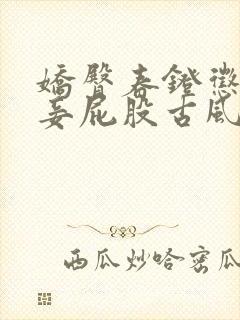 嬌臀春鐙懲
妾屁股古風
西瓜炒哈密瓜